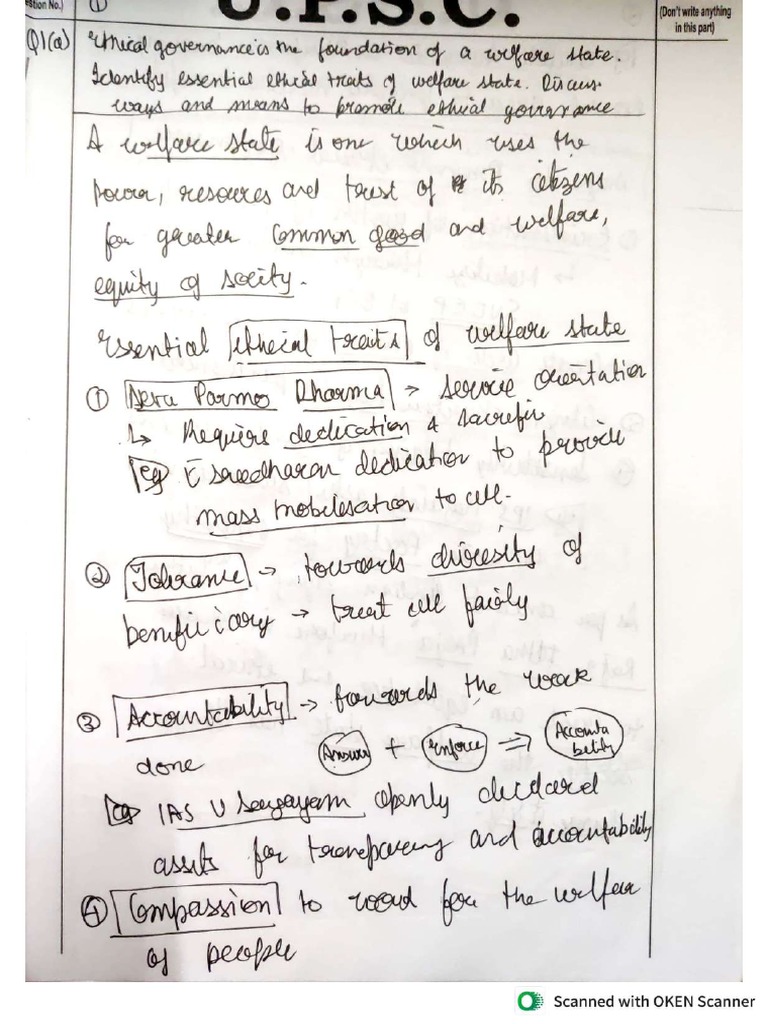 stion No.) (1) U.P.S.C. (Don't write anything
in this part)
Q1(a) Ethical governance is the foundation of a welfare state.
Identify essential ethical traits of welfare state. Discuss
ways and means to promote ethical governance
A welfare state is one which uses the
power, resources and trust of its citizens
for greater common good and welfare,
equity of society.
Essential ethical traits of welfare state
① Seva Parmo Dharma → service orientation
↳ Require dedication & sacrifice
eg E sreedharan dedication to provide
mass mobilisation to all.
② Tolerance → towards diversity of
beneficiary → treat all fairly
③ Accountability → towards the work
done Answer + enforce ⇒ Accounta
bility
eg IAS U Sagayam openly declared
assets for transparency and accountability
④ Compassion to word for the welfare
of people
Scanned with OKEN Scanner